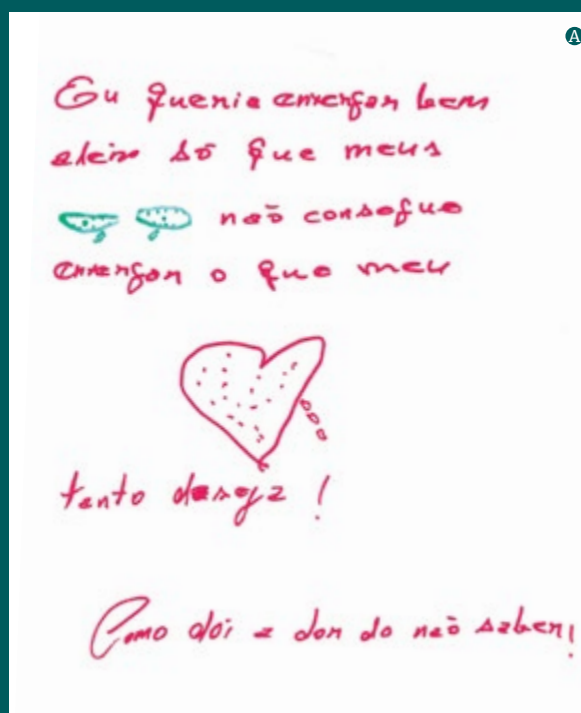 A
Eu queria enxergar bem
além só que meus
não consegue
enxergar o que meu
tanto deseja !
Como dói a dor do não saber!